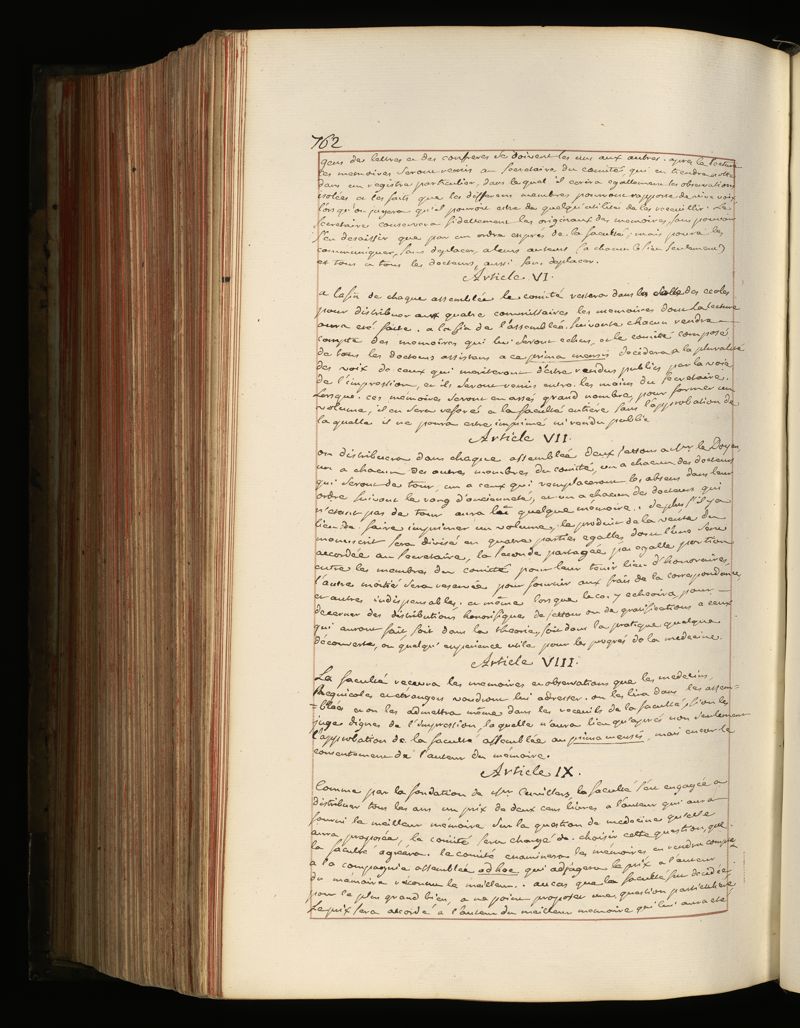 762
gens de lettres et des confreres se doivent les uns aux autres. apres la lecture
les memoires seront remis au secretaire du comité, qui en tiendra notte
dans un registre particulier, dans lequel il ecrira egallement les observations
isolées et les faits que les differens membres pourront rapporter de vive voix
lorsqu'on jugera qu'il pourroit etre de quelqu'utilité de les recueillir. Le
secretaire conservera fidellement les originaux des memoires, sans pouvoir
s'en desaisir que par un ordre exprés de la faculté; mais pourra les
communiquer, sans deplacer, a leurs auteurs (a chacun le sien seulement)
et tous a tous les docteurs, aussi sans deplacer.
Article VI.
a la fin de chaque assemblée le comité restera dans les salles des ecoles
pour distribuer aux quatre committaires les memoires dont la lecture
aura eté faite. a la fin de l'assemblée suivante chacun rendra
compte des memoires qui lui seront echus, et le comité composé
de tous les docteurs assistans a ce prima mensis decidera a la pluralité
des voix de ceux qui meriteront d'être rendus publics par la voie
de l'impression, et ils seront remis entre les mains du secretaire.
Lorsque ces memoires seront en assés grand nombre, pour former un
volume, il en sera referé a la faculté entiere sans l'approbation de
laquelle il ne pourra etre imprimé ni rendu public
Article VII.
on distribuera dans chaque assemblée deux jettons a Mr le Doyen,
un a chacun des autres membres du comité, un a chacun des docteurs
qui seront de tour, un a ceux qui remplaceront les absens dans leur
ordre suivant le rang d'ancienneté, et un a chacun des docteurs qui
n'etant pas de tour aura lû quelque mémoire. de plus s'il y a
lieu de faire imprimer un volume, le produit de la vente du
manuscrit sera divisé en quatre parties egalles, dont l'une sera
accordée au secretaire, la seconde partagée par egalle portion
entre les membres du comitté pour leur tenir lieu d'honoraires,
l'autre moitié sera reservée pour fournir aux frais de la correspondance
et autres indispensables. et même lorsque le cas y echeoira pour
decerner des distributions honorifiques de jettons ou de gratifications a ceux
qui auront fait soit dans la theorie, soit dans la pratique quelque
découverte, ou quelqu'experience utile pour les progrés de la medecine.
Article VIII.
La faculté recevra les memoires et observations que les medecins,
regnicoles et etrangers voudront lui adresser. on les lira dans les assem=
=blées et on les admettra même dans les recueils de la faculté, si on les
juge dignes de l'impression, laquelle n'aura lieu qu'après non seulement
l'approbation de la faculté assemblée au prima mensis, mais encor le
consentement de l'auteur du mémoire.
Article IX.
Comme par la fondation de Mr. la faculté s'est engagée a
distribuer tous les ans un prix de deux cens livres a l'auteur qui aura
fourni le meilleur mémoire sur la question de medecine qu'elle
aura proposée, le comité sera chargé de choisir cette question, que
la faculté agréera. le comité examinera les mémoires en rendra compte
a la compagnie assemblée ad hoc, qui adjugera le prix a l'auteur
du mémoire reconnu le meilleur. au cas que la faculté se decidée,
pour le plus grand bien, a ne point proposer une question particuliere,
Le prix sera accordé a l'auteur du meilleur memoire qui lui aura eté